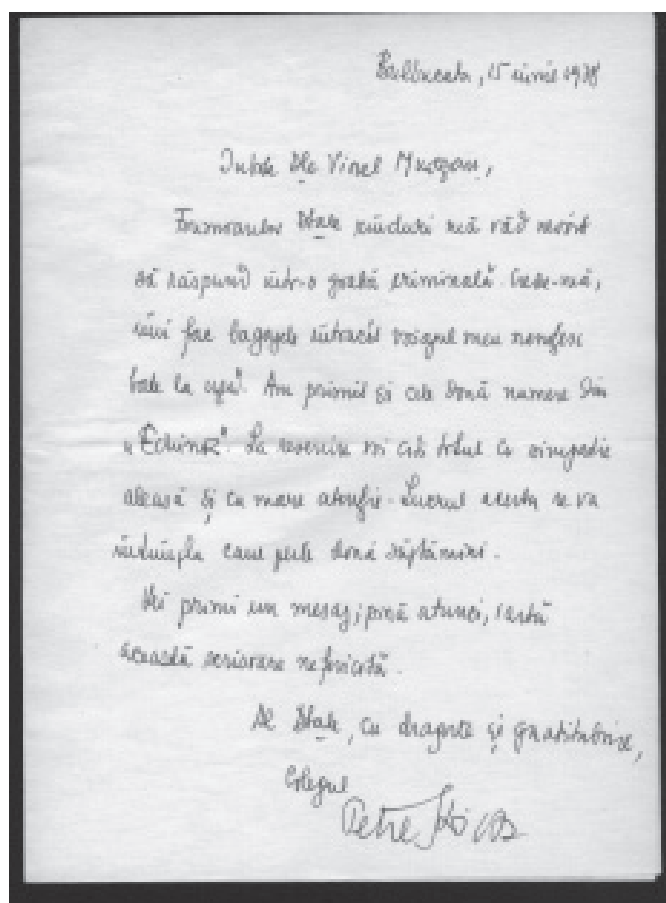 Bulbucata, 15 iunie 1978
Iubite Dle Viorel Mureșan,
Frumoaselor Dtale rînduri mă văd nevoit
să răspund într-o grabă criminală. Crede-mă,
îmi fac bagajele întrucît trenul meu
bate la ușă. Am primit și cele două numere din
„Echinox”. La revenire voi citi totul cu simpatie
aleasă și cu mare atenție. Lucrul acesta se va
întîmpla cam peste două săptămîni.
Vei primi un mesaj; pînă atunci, iartă
această scrisoare nefericită.
Al Dtale, cu dragoste și gratitudine,
Colegul
Petre Stoica